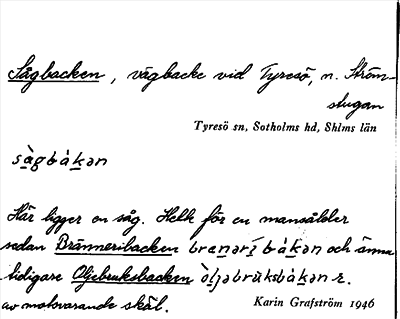 Sågbacken, vägbacke vid Tyresö, n. Ström-
stugan
Tyresö sn, Sotholms hd, Shlms län
sàgbákən
Här ligger en såg. Hette för en mansålder
sedan Bränneribacken brenəri bákən och ännu
tidigare Oljebruksbacken òljəbrùksbákən
av motsvarande skäl.
Karin Grafström 1946